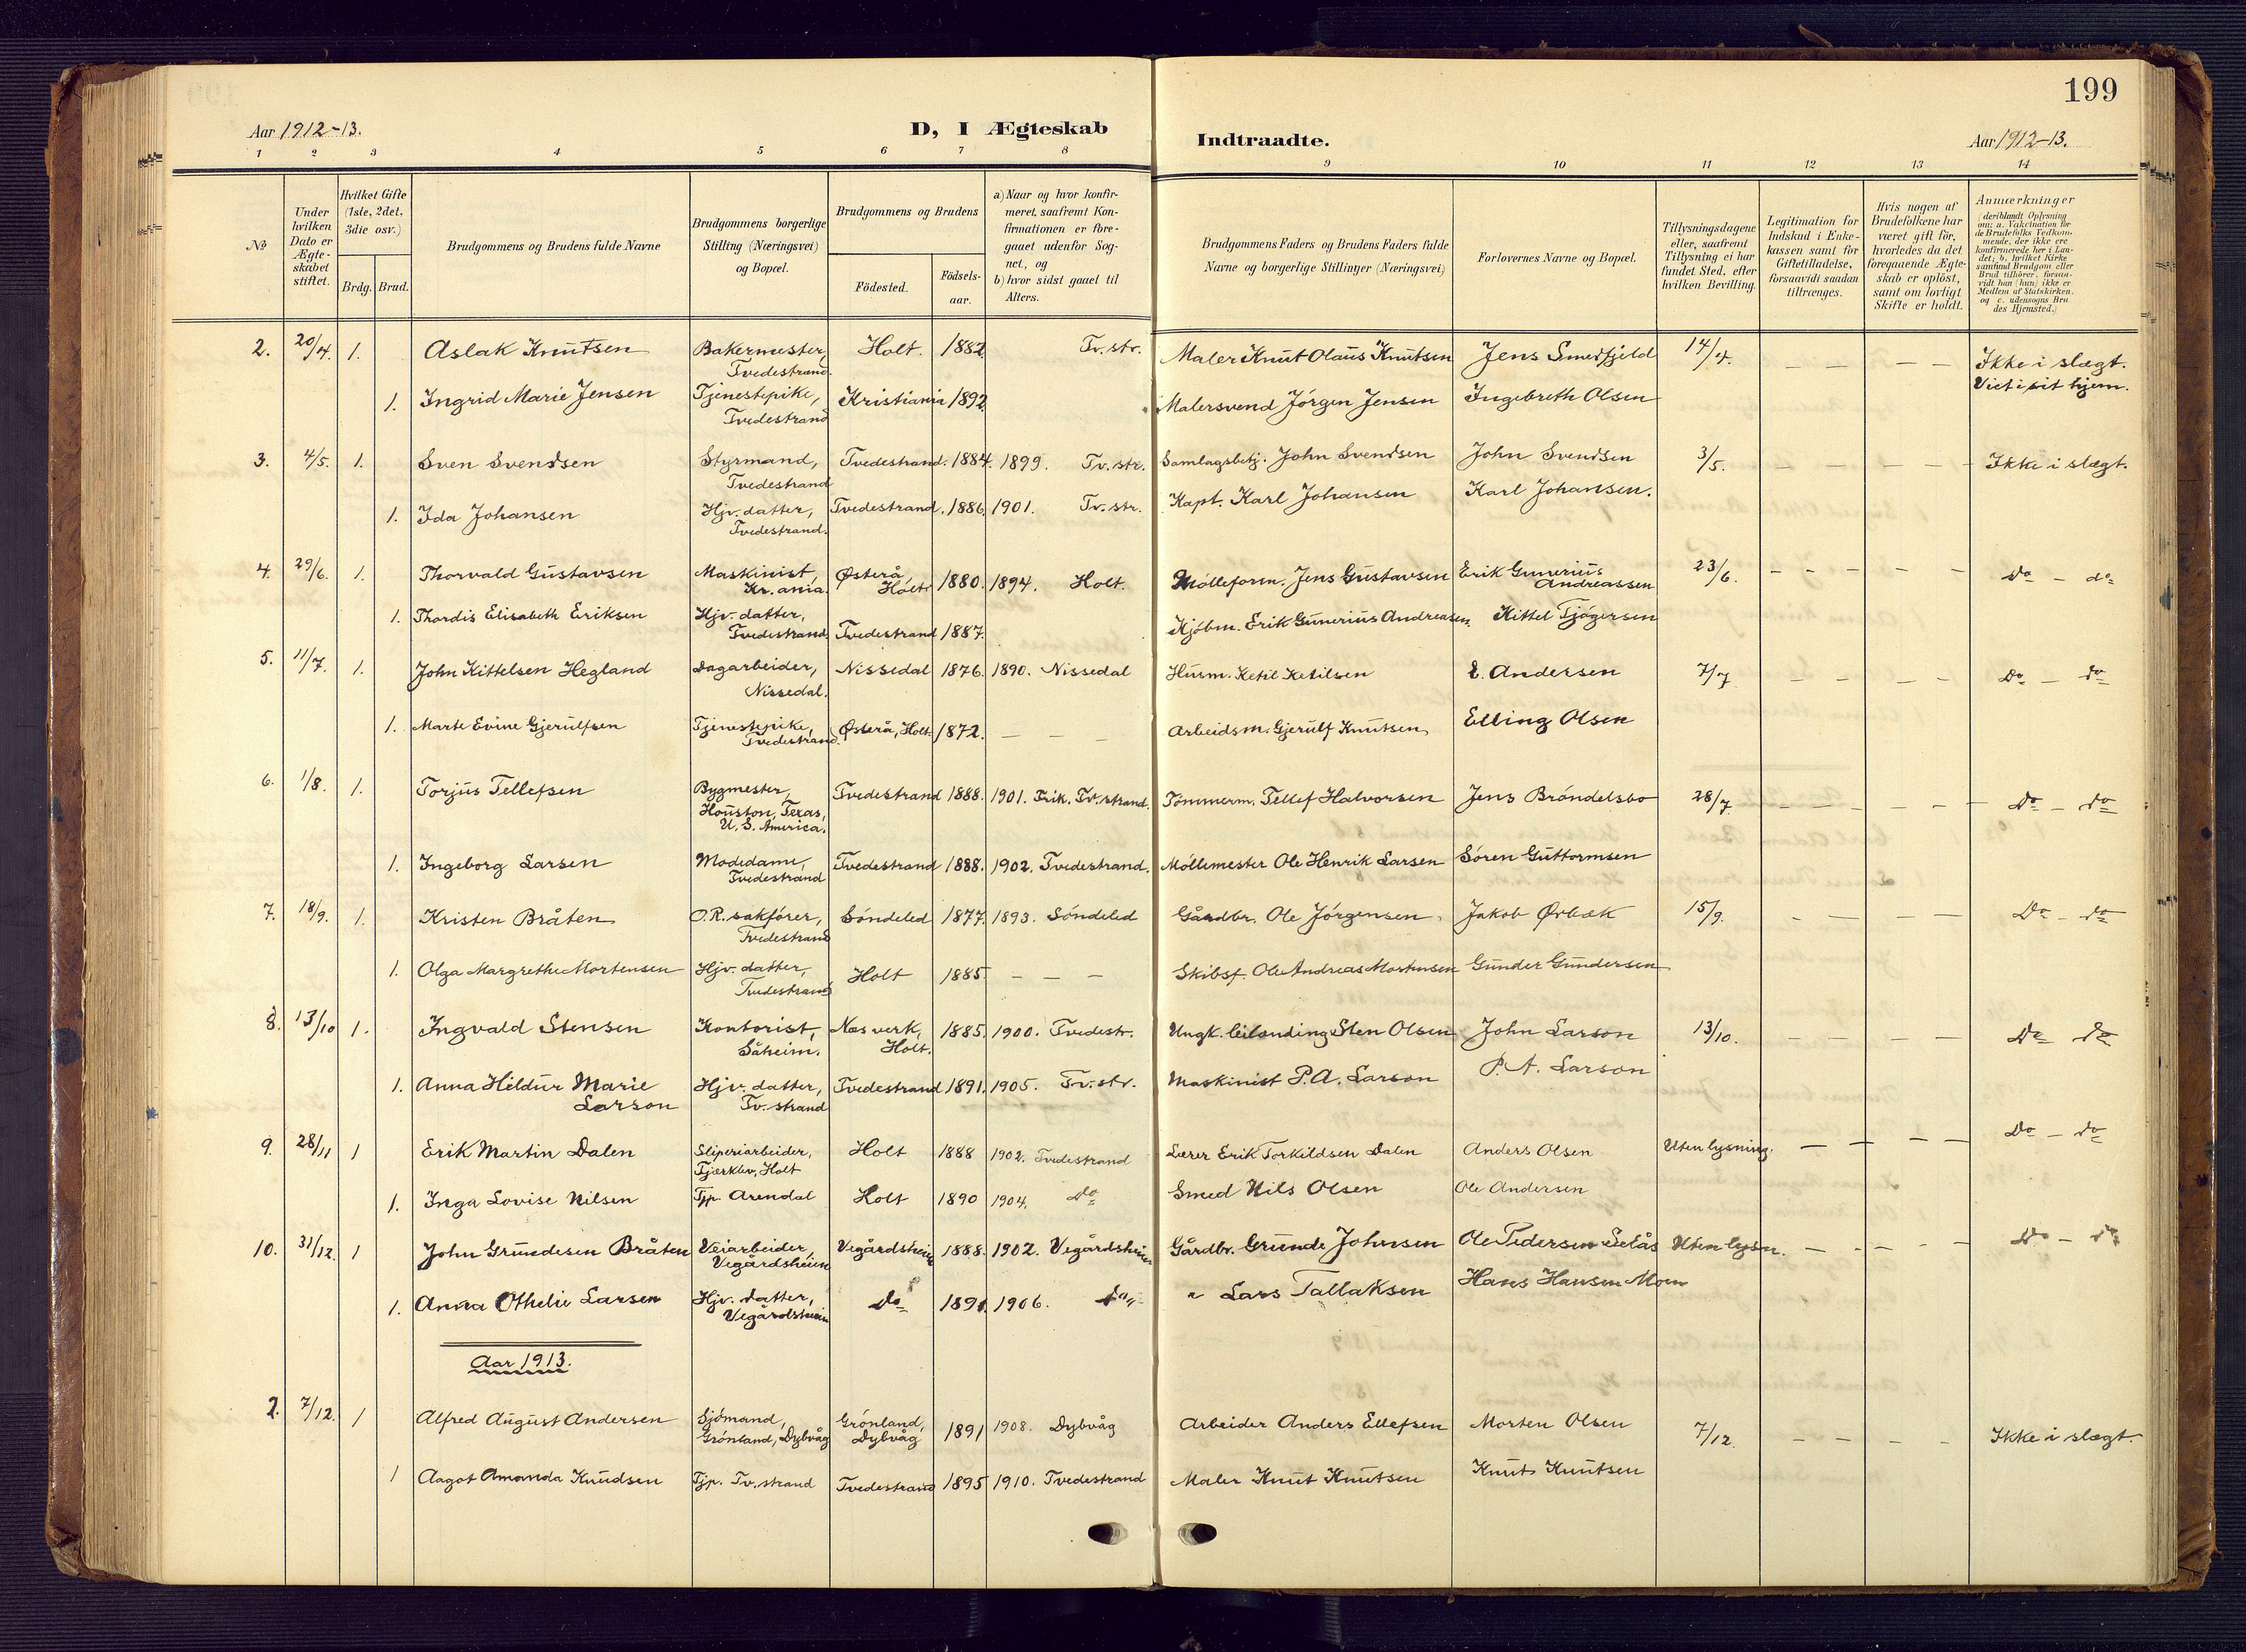 199
Aar 1912-13. D, I Ægteskab Indtraadte. Aar 1912-13.
1 2 3 4 5 6 7 8 9 10 11 12 13 14
No
Under hvilken Dato er Ægteskabet stiftet.
Hvilket Gifte (1ste, 2det, 3die osv.)
Brdg. Brud.
Brudgommens og Brudens fulde Navne
Brudgommens borgerlige Stilling (Næringsvei) og Bopæl.
Brudgommens og Brudens
Födested. Födselsaar.
a) Naar og hvor konfirmeret, saafremt Konfirmationen er foregaaet udenfor Sognet, og
b) hvor sidst gaaet til Alters.
Brudgommens Faders og Brudens Faders fulde Navne og borgerlige Stillinger (Næringsvei)
Forlovernes Navne og Bopæl.
Tillysningsdagene eller, saafremt Tillysning ei har fundet Sted, efter hvilken Bevilling.
Legitimation for Indskud i Enkekassen samt for Giftetilladelse, forsaavidt saadan tiltrænges.
Hvis nogen af Brudefolkene har været gift för, hvorledes da det foregaaende Ægteskab er oplöst, samt om lovligt Skifte er holdt.
Anmærkninger (deriblandt Oplysning om: a. Vakcination for de Brudefolks Vedkommende, der ikke ere konfirmerede her i Landet; b. hvilket Kirkesamfund Brudgom eller Brud tilhörer, forsaavidt han (hun) ikke er Medlem af Statskirken. og c. udensogns Brudes Hjemsted.)
2. 20/4. 1. Aslak Knutsen Bakermester, Tvedestrand. Holt. 1882. Tv.str. Maler Knut Olaus Knutsen Jens Smedfjeld 14/4. — — — — Ikke i slægt. Viet i sit hjem.
1. Ingrid Marie Jensen Tjenestepike, Tvedestrand Kristiania 1892. Malersvend Jörgen Jensen Ingebreth Olsen
3. 4/5. 1. Sven Svendsen Styrmand, Tvedestrand Tvedestrand. 1884. 1899. Tv.str. Samlagsbetj. John Svendsen John Svendsen 3/5. — — — — Ikke i slægt.
1. Ida Johansen Hjv. datter, Tvedestrand. Tvedestrand. 1886. 1901. Tv.str. Kapt. Karl Johansen Karl Johansen.
4. 29/6. 1. Thorvald Gustavsen Maskinist, Kr.ania. Østerå, Holt 1880. 1894. Holt. Mölleform. Jens Gustavsen Erik Gunerius Andreassen 23/6. — — — — do — do
1. Thordis Elisabeth Eriksen Hjv. datter, Tvedestrand. Tvedestrand 1887. Kjöbm. Erik Gunerius Andreasen Kittel Tjögersen
5. 11/7. 1. John Kittelsen Hegland Dagarbeider, Nissedal. Nissedal 1876. 1890. Nissedal Husm. Ketil Ketilsen E. Andersen 7/7 — — — — Do — do
1. Marte Evine Gjerulfsen Tjenestepike, Tvedestrand. Østerå, Holt. 1872. — — — Arbeidsm. Gjerulf Knutsen Elling Olsen
6. 1/8. 1. Torjus Tellefsen Bygmester, Houston, Texas, U. S. America. Tvedestrand 1888. 1901. Frik. Tv.strand. Tömmerm. Tellef Halvorsen Jens Bröndelsbo 28/7 — — — — Do — do
1. Ingeborg Larsen Modedame, Tvedestrand Tvedestrand 1888. 1902. Tvedestrand. Möllemester Ole Henrik Larsen Sören Guttormsen
7. 18/9. 1. Kristen Bråten O.R. sakförer, Tvedestrand Söndeled 1877. 1893. Söndeled Gårdbr. Ole Jörgensen Jakob Ørbæk 15/9. — — — — Do — do
1. Olga Margrethe Mortensen Hjv. datter, Tvedestrand Holt 1885. — — — Skibsf. Ole Andreas Mortensen Gunder Gundersen
8. 13/10 1. Ingvald Stensen Kontorist, Såheim. Næs verk, Holt. 1885. 1900. Tvedestr. Ungk. leilænding Sten Olsen John Larson 13/10. — — — — Do do
1. Anna Hildur Marie Larson Hjv. datter, Tv.strand Tvedestrand 1891. 1905. Tv.str. Maskinist P.A. Larson P.A. Larson
9. 28/11 1 Erik Martin Dalen Sliperiarbeider, Tjærkler, Holt Holt 1888 1902. Tvedestrand Lærer Erik Torkildsen Dalen Anders Olsen Uten lysning. — — — — Do — do
1. Inga Lovise Nilsen Tjp. Arendal Holt 1890 1904. Do Smed Nils Olsen Ole Andersen
10. 31/12. 1 John Grundesen Bråten Veiarbeider, Vegårdsheien Vegårdsheien 1888. 1902. Vegårdsheien Gårdbr. Grunde Johnsen Ole Pedersen Selås Uten lysn. — — — — Do — do
1. Anna Othelie Larsen Hjv. datter, Vegårdsheien Do 1891. 1906. Do „ Lars Tallaksen Hans Hansen Moen
Aar 1913.
2. 7/12. 1 Alfred August Andersen Sjömand, Grönland, Dybvåg Grönland, Dybvåg 1891 1908. Dybvåg Arbeider Anders Ellefsen Morten Olsen 7/12. — — — — Ikke i slægt.
1 Aagot Amanda Knudsen Tjp. Tv.strand Tvedestrand 1895 1910. Tvedestrand Maler Knut Knutsen Knut Knutsen